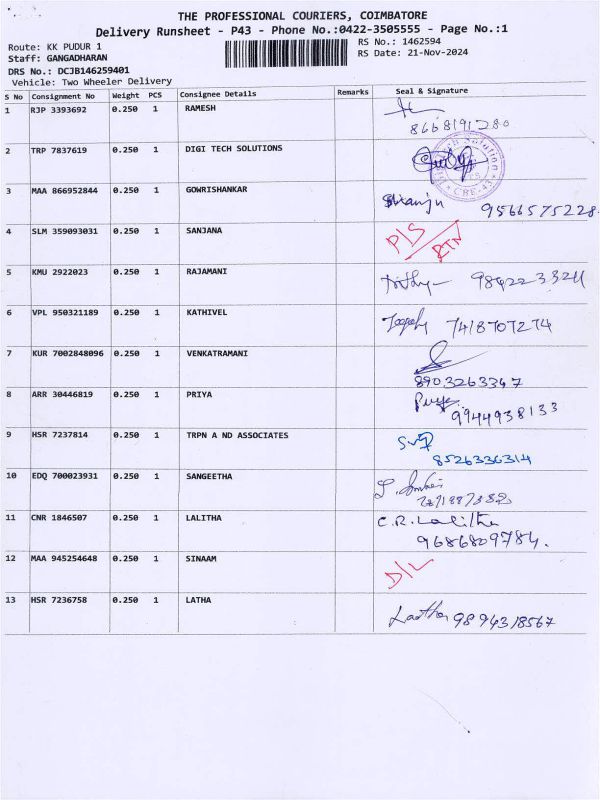 THE PROFESSIONAL COURIERS, COIMBATORE
Delivery Runsheet - P43 - Phone No.:0422-3505555 - Page No.:1
Route: KK PUDUR 1
RS No.: 1462594
Staff: GANGADHARAN
RS Date: 21-Nov-2024
DRS No.: DCJB146259401
Vehicle: Two Wheeler Delivery
S No Consignment No Weight PCS Consignee Details Remarks Seal & Signature
1 RJP 3393692 0.250 1 RAMESH
8668191280
2 TRP 7837619 0.250 1 DIGI TECH SOLUTIONS
3 MAA 866952844 0.250 1 GOWRISHANKAR
9566575228
4 SLM 359093031 0.250 1 SANJANA P/S
RTN
5 KMU 2922023 0.250 1 RAJAMANI
6 VPL 950321189 0.250 1 KATHIVEL 7418707274
7 KUR 7002848096 0.250 1 VENKATRAMANI
8903263347
8 ARR 30446819 0.250 1 PRIYA
9944938133
9 HSR 7237814 0.250 1 TRPN A ND ASSOCIATES
8526336314
10 EDQ 700023931 0.250 1 SANGEETHA
11 CNR 1846507 0.250 1 LALITHA C.R. Lalitha
9686809784.
12 MAA 945254648 0.250 1 SINAAM D/L
13 HSR 7236758 0.250 1 LATHA
9894318567